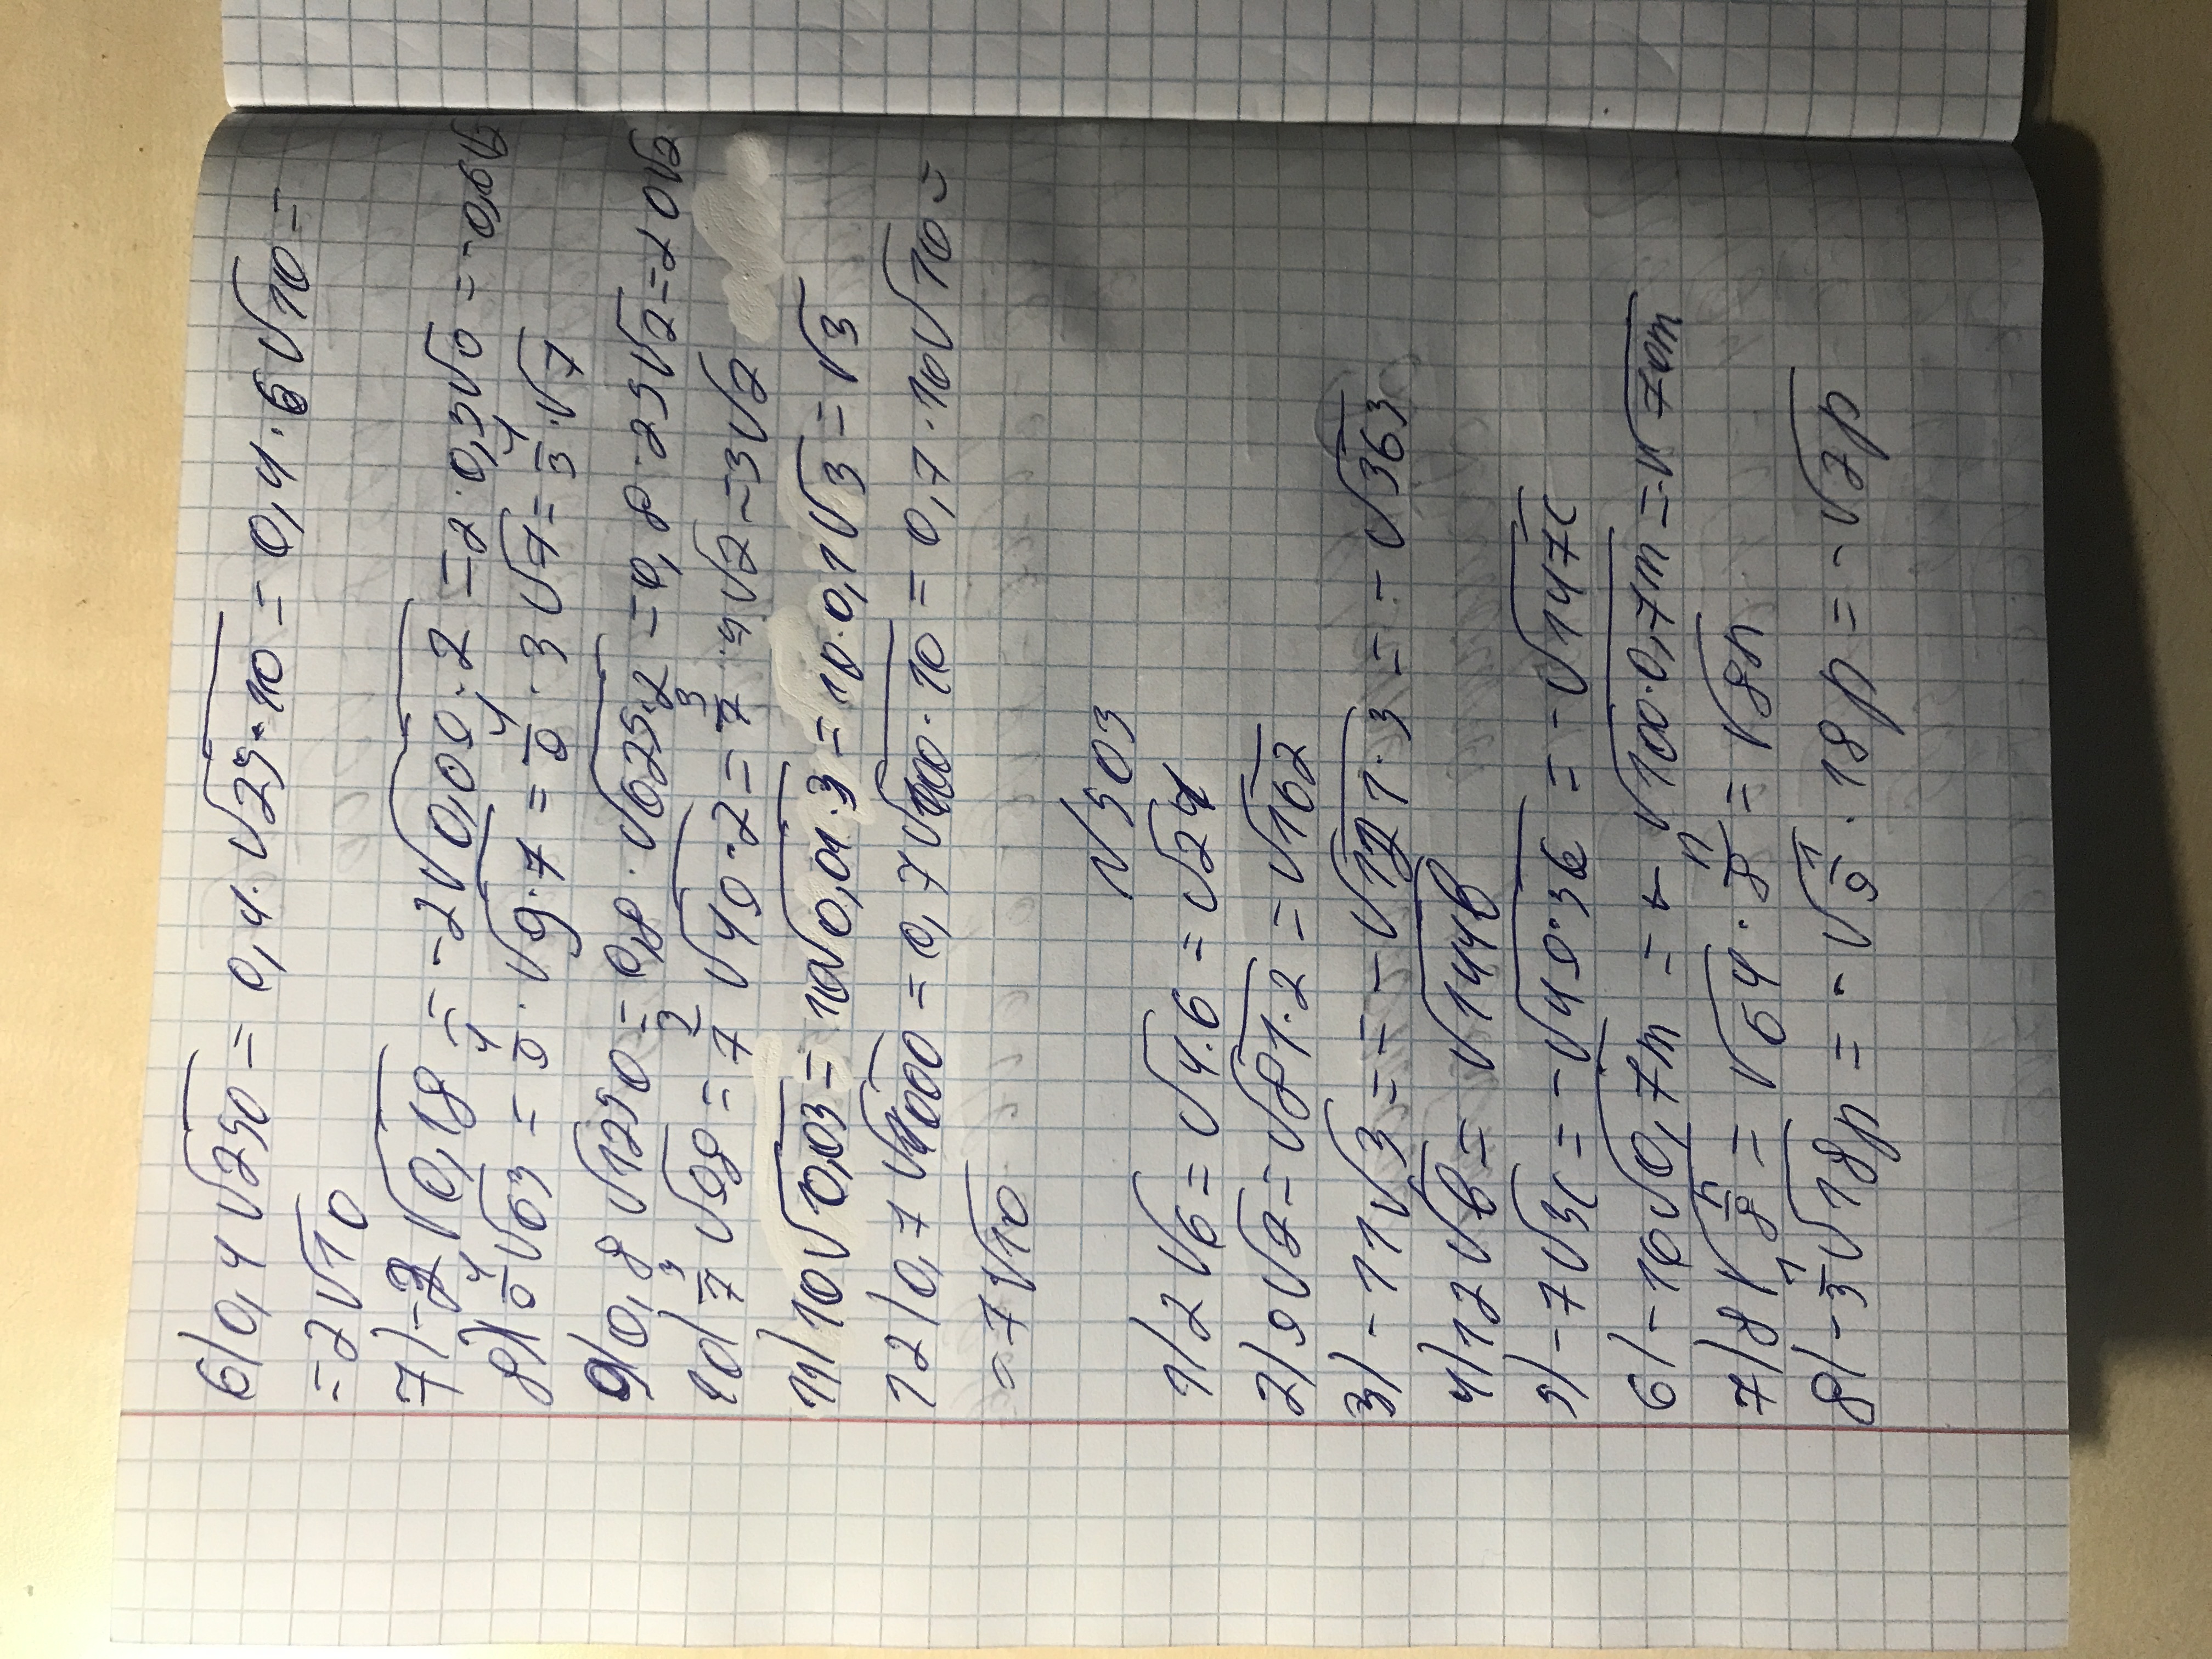 6) 0,4√250 = 0,4·√25·10 = 0,4·5√10 =
= 2√10
7) -2√0,18 = -2√0,09·2 = -2·0,3√2 = -0,6√2
8) 4/9√63 = 4/9·√9·7 = 4/9·3√7 = 4/3·√7
9) 0,8√1250 = 0,8·√625·2 = 0,8·25√2 = 20√2
10) 3/7√98 = 3/7√49·2 = 3/7·7√2 = 3√2
11) 10√0,03 = 10√0,01·3 = 10·0,1√3 = √3
12) 0,7√1000 = 0,7√100·10 = 0,7·10√10 =
= 7√10
√503
1) 2√6 = √4·6 = √24
2) 9√2 = √81·2 = √162
3) -11√3 = = -√121·3 = = -√363
4) 12√b = √144b
5) -7√3c = -√49·3c = -√147c
6) -10√0,7m = -√100·0,7m = -√70m
7) 8√n/8 = √64·n/8 = √8n
8) -1/3√18p = -√1/9·18p = -√2p